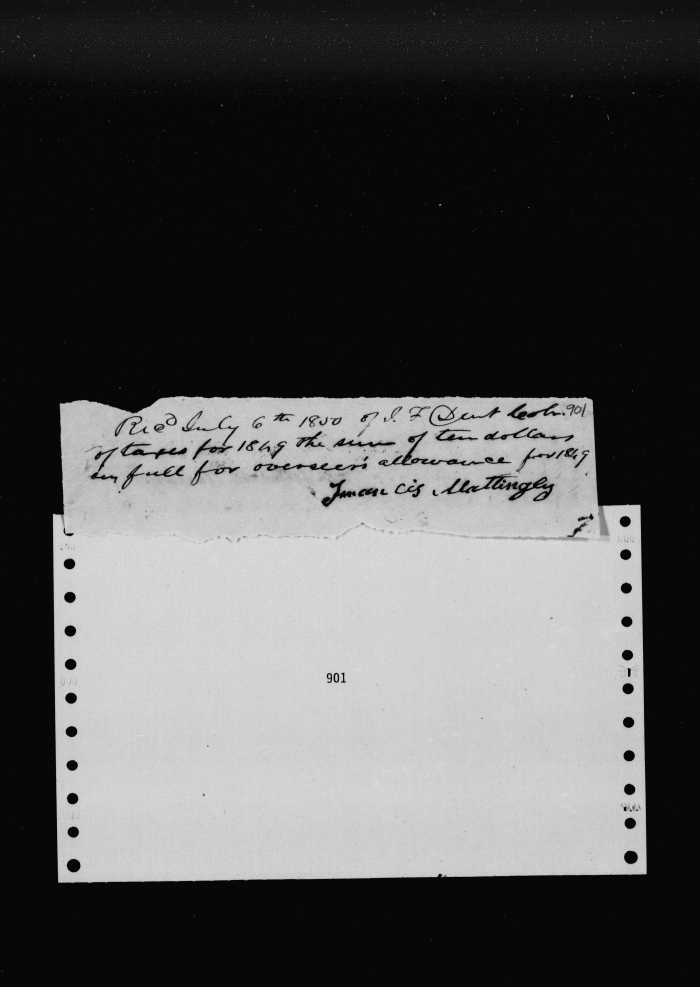 Rec'd July 6th 1850 of J. F. Dent Colr. 901
of taxes for 1849 the sum of ten dollars
in full for overseers allowance for 1849
Francis Mattingly
901